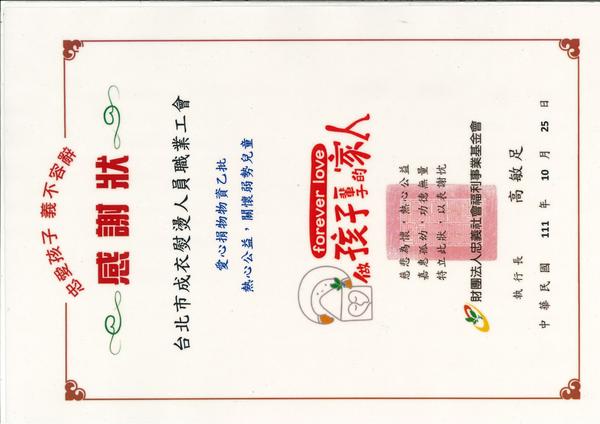 忠學孩子 義不容辭
感謝狀
台北市成衣熨燙人員職業工會
愛心捐物物資乙批
熱心公益，關懷弱勢兒童
forever love
做孩子一輩子的家人
慈悲為懷，熱心公益
嘉惠孤幼，功德無量
特立此狀，以表謝忱
財團法人忠義社會福利事業基金會
執行長 高敏足
中華民國 111 年 10 月 25 日